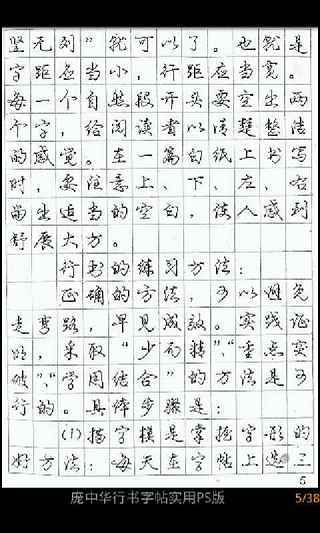 竖无列”就可以了。也就是
字距应当小，行距应当宽。
每一个自然段开头要空出两
个字，给阅读者以清楚整洁
的感觉。在一篇白纸上书写
时，要注意上、下、左、右
留出适当的空白，使人感到
舒展大方。
行书的练习方法：
正确的方法，可以避免
走弯路，早见成效。实践证
明，采取“少而精”、“重点突
破”、“学用结合”的方法是可
行的。具体步骤是：
⑴描字模是掌握字形的
好方法：每天在字帖上选三
5
庞中华行书字帖实用PS版
5/38